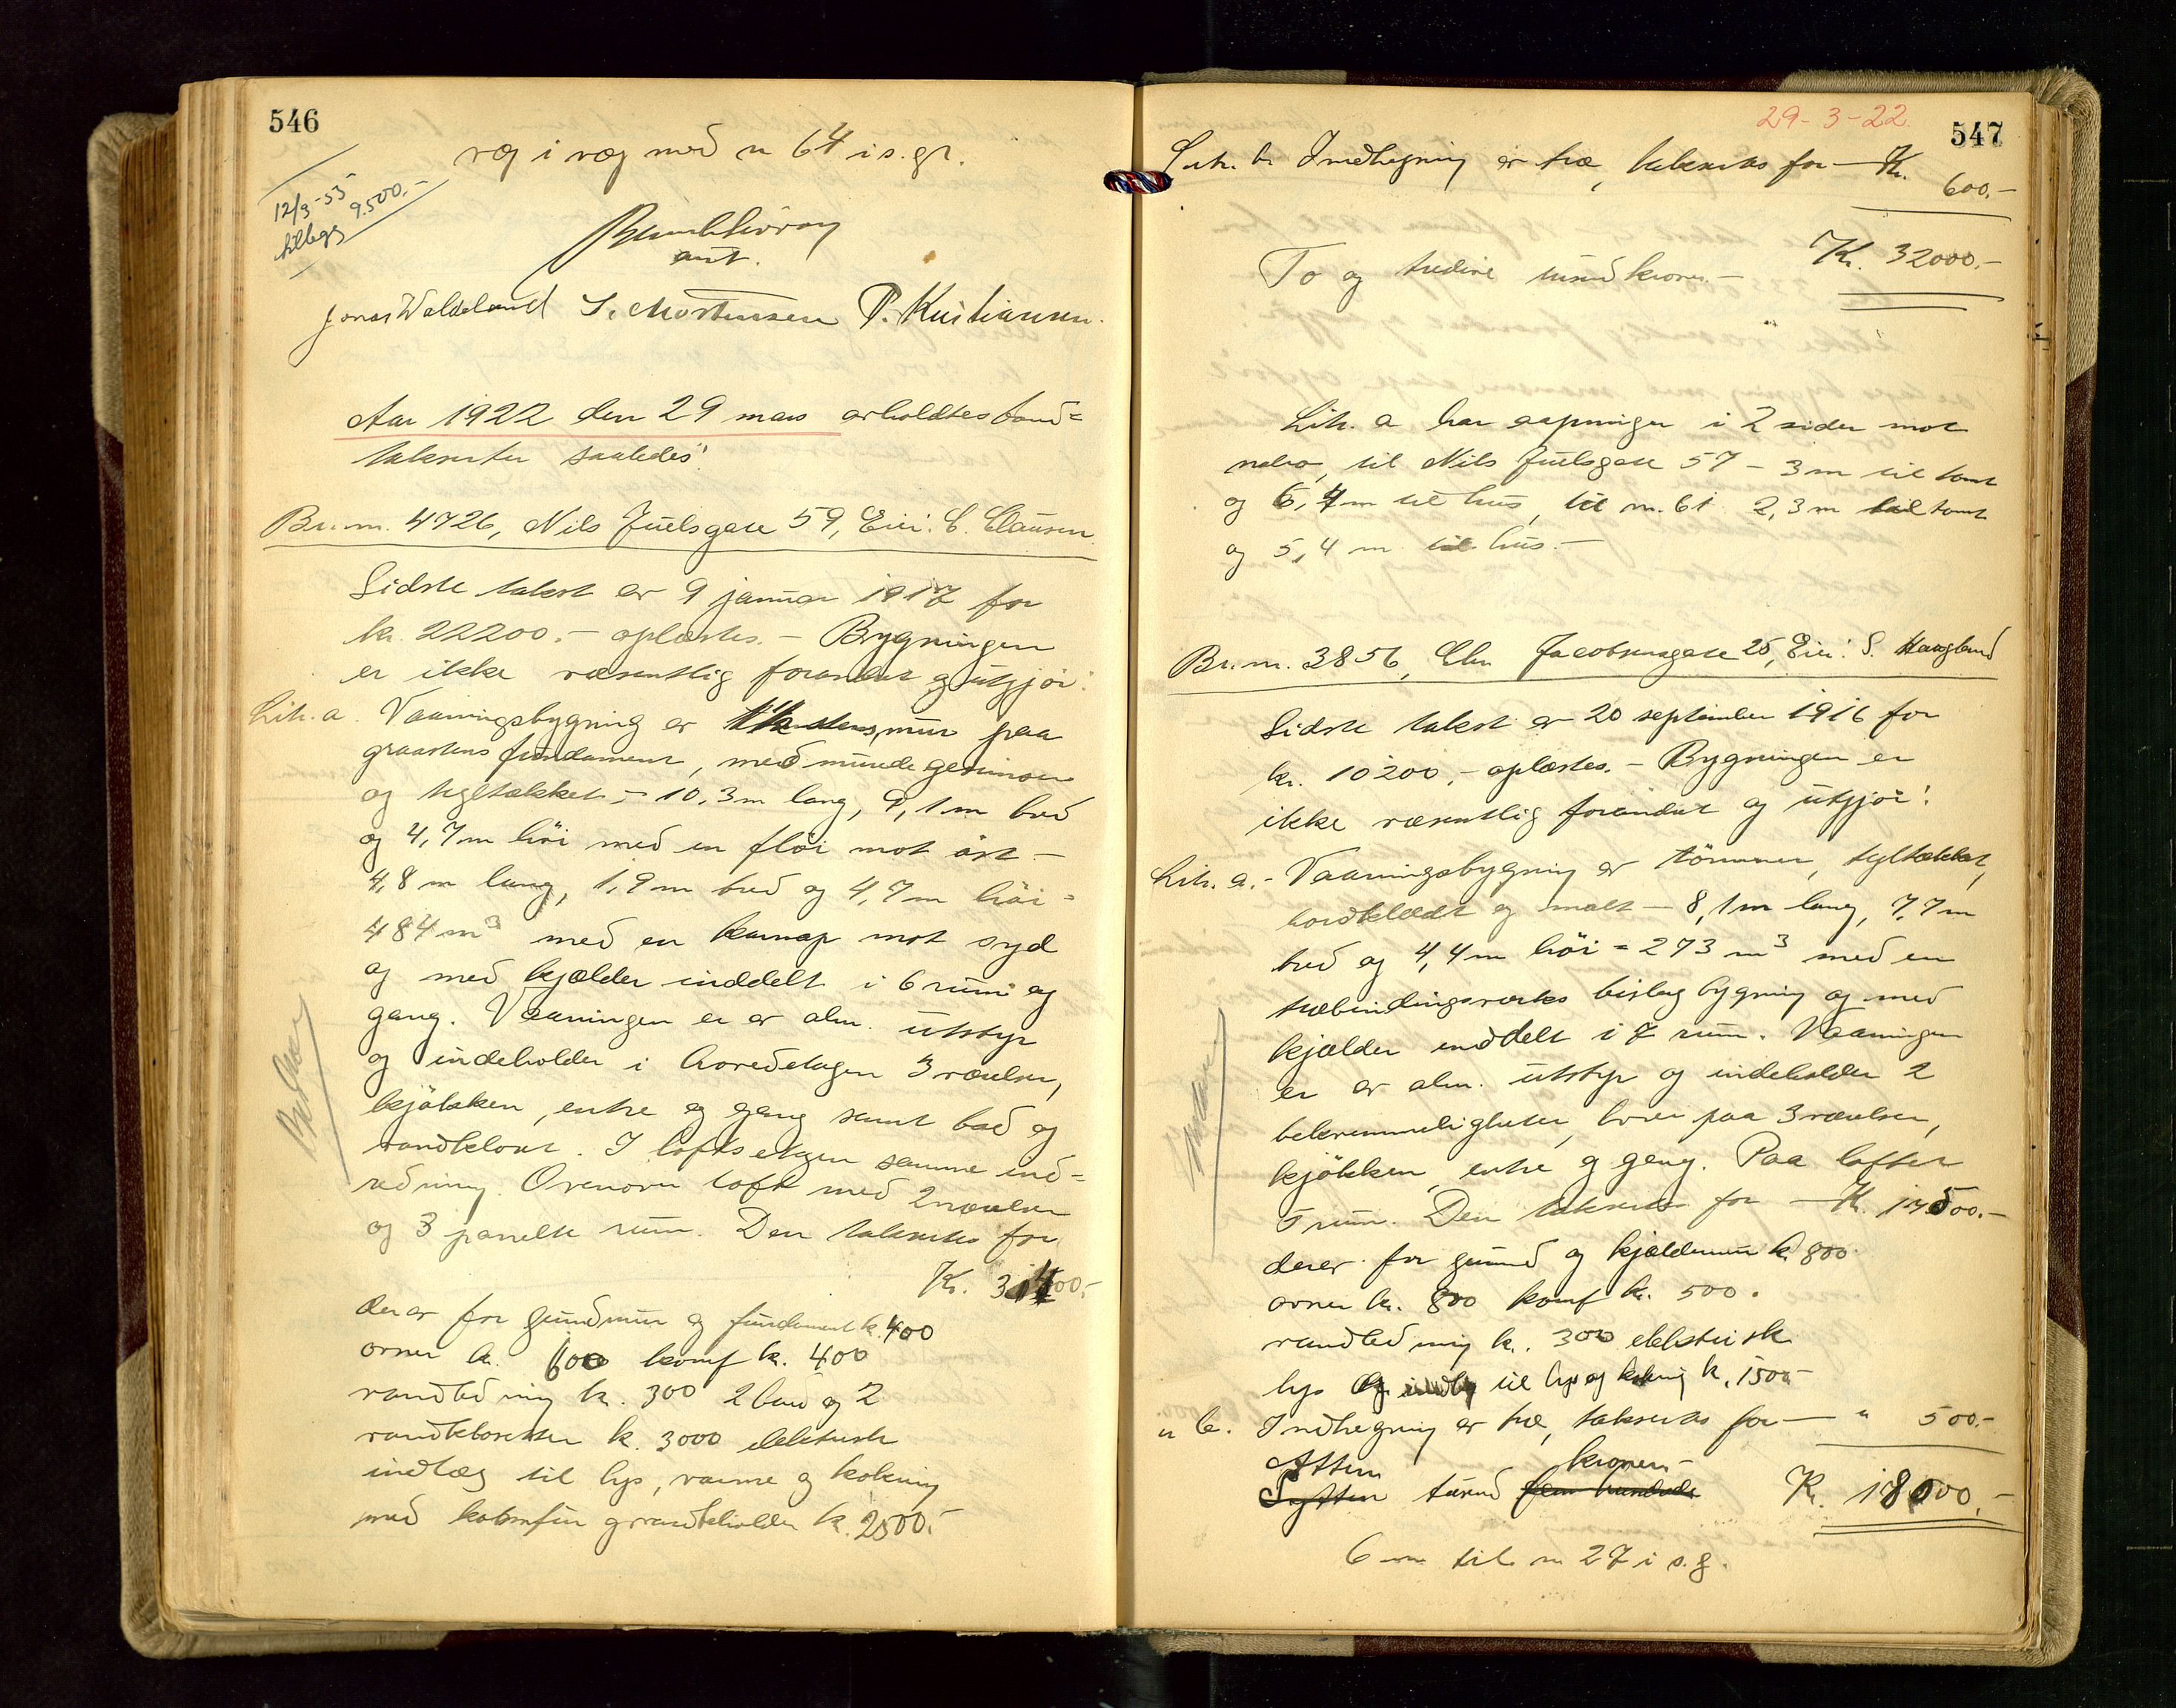 546
væg i væg med n 64 i s. gt.
12/3-55
tillegg 9.500.-
ant.
Jonas Waldeland S. Mortensen P. Kristiansen.
Aar 1922 den 29 mars avholdtes brand=
takster saaledes:
Br. nr. 4726, Nils Juelsgate 59, Eier: C. Clausen
Sidste takst er 9 januar 1917 for
kr. 22200.- oplæstes. - Bygningen
er ikke væsentlig forandret og utgjør:
Lit. a. Vaaningsbygning av 1 1/2 stens mur paa
graastens fundament, med murede gesimser
og tegltækket - 10,3 m lang, 9,1 m bred
og 4,7 m höi med en flöi mot öst -
4,8 m lang, 1,9 m bred og 4,7 m höi =
484 m³ med en karnap mot syd
og med kjælder inddelt i 6 rum og
gang. Vaaningen er av alm. utstyr
og indeholder i hovedetagen 3 værelser,
kjökken, entre og gang samt bad og
vandklosat. I loftsetagen samme ind=
redning. Ovenover loft med 2 værelser
og 3 panelte rum. Den takseres for
Kr. 31400.-
derav for grundmur og fundament k. 400
ovner k. 600 komf k. 400
vandledning k. 300 2 bad og 2
vandklosetter k. 3000 elektrisk
indlæg til lys, varme og kokning
med komfur og vandbeholder k. 2500.-
547
29-3-22
Lit. b. Indhegning av træ, takseres for - Kr. 600.-
Kr. 32000.-
To og tredive tusind kroner. -
Lit. a har aapninger i 2 sider mot
nabo, til Nils Juelsgate 57 - 3 m til tomt
og 6,4 m til hus, til nr. 61 2,3 m til tomt
og 5,4 m til hus. -
Br. nr. 3856, Chr Jacobsensgate 25, Eier: S. Haagland
Sidste takst er 20 september 1916 for
kr. 10200,- oplæstes. - Bygningen er
ikke væsentlig forandret og utgjör:
Lit. a. - Vaaningsbygning av tömmer, tegltækket,
bordklædt og malt - 8,1 m lang, 7,7 m
bred og 4,4 m höi = 273 m³ med en
træbindingsverks bislag bygning og med
kjælder inddelt i 7 rum. Vaaningen
er av alm. utstyr og indeholder 2
bekvemmeligheter, hver paa 3 værelser,
kjökken, entre og gang. Paa loftet
5 rum. Den takseres for - Kr. 17500.-
derav for grund og kjældermur k. 800
ovner k. 800 komf k. 500.
vandledning k. 300 elektrisk
lys til lys og kokning k. 1500-
" b. Indhegning av træ, takseres for - " 500.-
Atten kroner -
Sytten tusind fem hundrede Kr. 18000.-
6 m til nr 27 i s. g.